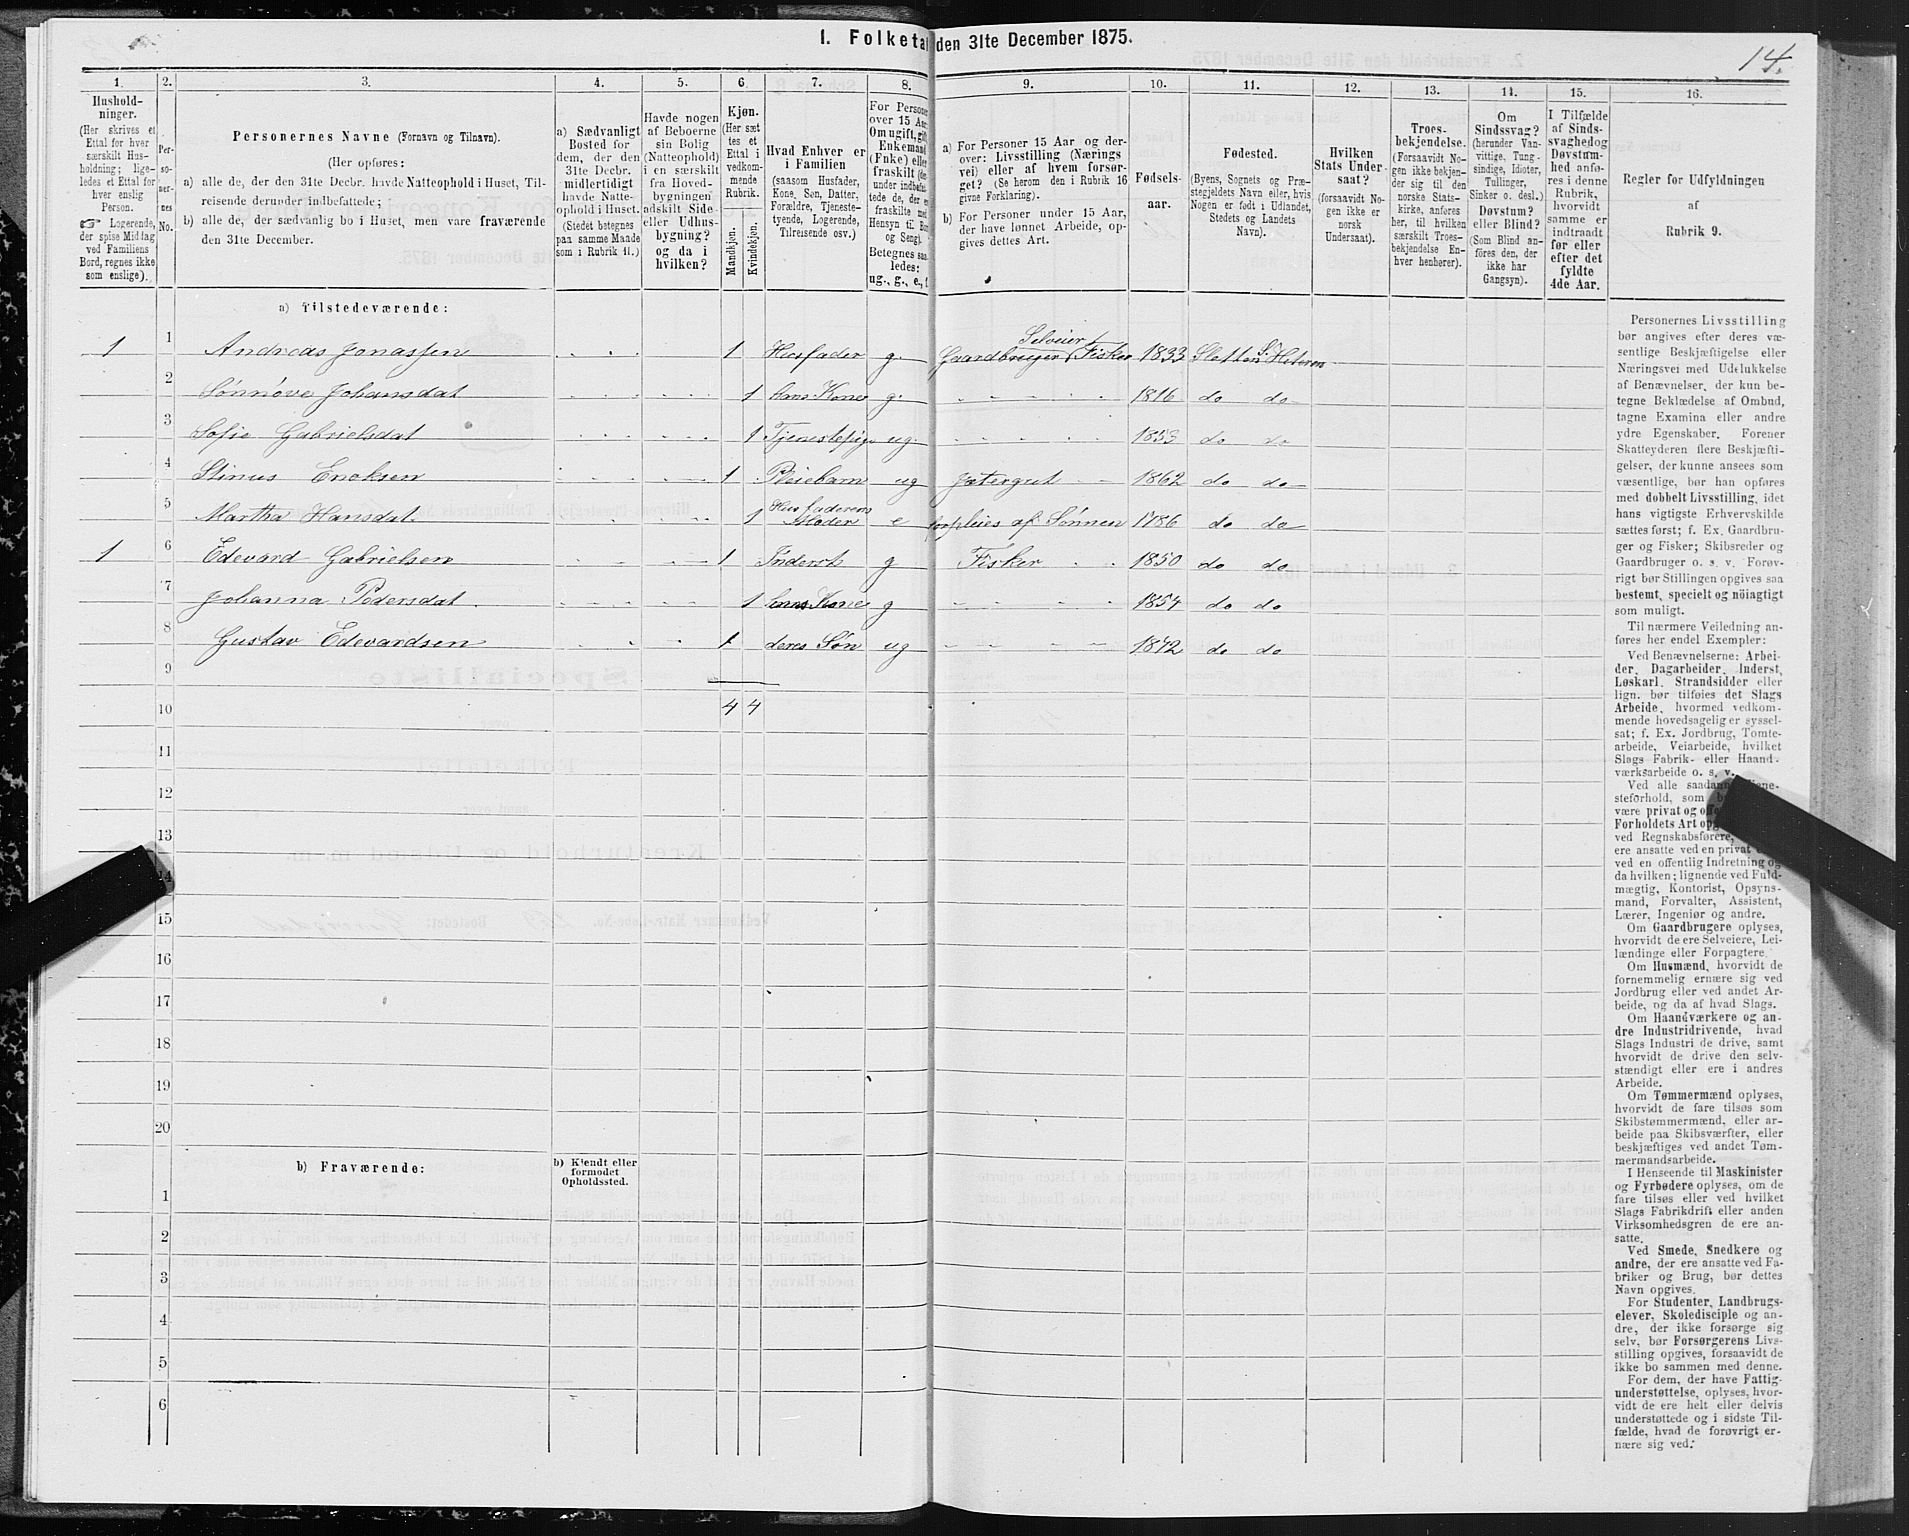 I. Folketal den 31te December 1875.
14.
1. 2. 3. 4. 5. 6. 7. 8. 9. 10. 11. 12. 13. 14. 15. 16.
Hushold-
ninger.
(Her skrives et
Ettal for hver
særskilt Hus-
holdning; lige-
ledes et Ettal for
hver enslig
Person.
Logerende,
der spise Middag
ved Familiens
Bord, regnes ikke
som enslige).
Per-
so-
ner-
nes
No.
Personernes Navne (Fornavn og Tilnavn).
(Her opføres:
a) alle de, der den 31te Decbr. havde Natteophold i Huset, Til-
reisende derunder indbefattede;
b) alle de, der sædvanlig bo i Huset, men vare fraværende
den 31te December.
a) Sædvanligt
Bosted for
dem, der den
31te Decbr.
midlertidigt
havde Natte-
ophold i Huset.
(Stedet betegnes
paa samme Maade
som i Rubrik 11.)
Havde nogen
af Beboerne
sin Bolig
(Natteophold)
i en særskilt
fra Hoved-
bygningen
adskilt Side-
eller Udhus-
bygning?
og da i
hvilken?
Kjøn.
(Her sæt-
tes et
Ettal i
vedkom-
mende
Rubrik.
Mandkjøn.
Kvindekjøn.
Hvad Enhver er
i Familien
(saasom Husfader,
Kone, Søn, Datter,
Forældre, Tjeneste-
tyende, Logerende,
Tilreisende osv.)
For Personer
over 15 Aar
Om ugift, gift,
Enkemand
(Enke) eller
fraskilt (der-
under indbefat-
tede de, der ere
fraskilte med
Hensyn til Bord
og Seng).
Betegnes saa-
ledes:
ug., g., e., f.
a) For Personer 15 Aar og der-
over: Livsstilling (Nærings
vei) eller af hvem forsør-
get? (Se herom den i Rubrik 16
givne Forklaring).
b) For Personer under 15 Aar,
der have lønnet Arbeide, op-
gives dettes Art.
Fødsels-
aar.
Fødested.
(Byens, Sognets og Præ-
stegjeldets Navn eller, hvis
Nogen er født i Udlandet,
Stedets og Landets
Navn).
Hvilken
Stats Under-
saat?
(forsaavidt No-
gen ikke er
norsk
Undersaat).
Troes-
bekjendelse.
(Forsaavidt No-
gen ikke bekjen-
der sig til den
norske Stats-
kirke, anføres
her, til hvilken
særskilt Troes-
bekjendelse En-
hver henhører).
Om
Sindssvag?
(herunder Van-
vittige, Tung-
sindige, Idioter,
Tullinger,
Sinker o. desl.)
Døvstum?
eller Blind?
(Som Blind an-
føres den, der
ikke har
Gangsyn).
I Tilfælde
af Sinds-
svaghed og
Døvstum-
hed anfø-
res i denne
Rubrik,
hvorvidt
samme er
indtraadt
før eller
efter det
fyldte
4de Aar.
Regler for Udfyldningen
af
Rubrik 9.
a) Tilstedeværende:
1 1 Andreas Jonassen 1 Husfader g. Gaardbruger, Selveier, Fisker 1833 Sletten S. Heteren
2 Sønnøve Johansdat 1 hans Kone g. 1816 do do
3 Sofie Gabrielsdat 1 Tjenestepige ug. 1853 do do
4 Stinus Enoksen 1 Pleiebarn ug Jætergut 1862 do do
5 Martha Hansdat. 1 Husfaderens Moder e forpleies af Sønnen 1786 do do
1 6 Edevard Gabrielsen 1 Inderst g Fisker 1850 do do
7 Johanna Pedersdat. 1 hans Kone g 1854 do do
8 Gustav Edevardsen 1 deres Søn ug 1872 do do
9
10 4 4
11
12
13
14
15
16
17
18
19
20
b) Fraværende:
b) Kjendt eller
formodet
Opholdssted.
1
2
3
4
5
6
Personernes Livsstilling
bør angives efter deres væ-
sentlige Beskjæftigelse eller
Næringsvei med Udelukkelse
af Benævnelser, der kun be-
tegne Beklædelse af Ombud,
tagne Examina eller andre
ydre Egenskaber. Forener
Skatteyderen flere Beskjæfti-
gelser, der kunne ansees som
væsentlige, bør han opføres
med dobbelt Livsstilling, idet
hans vigtigste Erhvervskilde
sættes først; f. Ex. Gaardbru-
ger og Fisker; Skibsreder og
Gaardbruger o. s. v. Forøv-
rigt bør Stillingen opgives saa
bestemt, specielt og nöiagtigt
som muligt.
Til nærmere Veiledning an-
føres her endel Exempler:
Ved Benævnelserne: Arbei-
der, Dagarbeider, Inderst,
Løskarl, Strandsidder eller
lign. bør tilføies det Slags
Arbeide, hvormed vedkom-
mende hovedsagelig er syssel-
sat; f. Ex. Jordbrug, Tomte-
arbeide, Veiarbeide, hvilket
Slags Fabrik- eller Haand-
værksarbeide o. s. v.
Ved alle saadanne Tjene-
steforhold, som
være privat og off
Forholdets Art opg
ved Regnskabsførere,
ere ansatte ved en privat
ved en offentlig Indretning og
da hvilken; lignende ved Fuld-
mægtig, Kontorist, Opsyns-
mand, Forvalter, Assistent,
Lærer, Ingeniør og andre.
Om Gaardbrugere oplyses,
hvorvidt de ere Selveiere, Lei-
lændinge eller Forpagtere.
Om Husmænd, hvorvidt de
fornemmelig ernære sig ved
Jordbrug eller ved andet Ar-
beide, og da af hvad Slags.
Om Haandværkere og an-
dre Industridrivende, hvad
Slags Industri de drive, samt
hvorvidt de drive den selv-
stændigt eller ere i andres
Arbeide.
Om Tømmermænd oplyses,
hvorvidt de fare tilsøs som
Skibstømmermænd, eller ar-
beide paa Skibsværfter, eller
beskjæftiges ved andet Tøm-
mermandsarbeide.
I Henseende til Maskinister
og Fyrbødere oplyses, om de
fare tilsøs eller ved hvilket
Slags Fabrikdrift eller anden
Virksomhedsgren de ere an-
satte.
Ved Smede, Snedkere og
andre, der ere ansatte ved Fa-
briker og Brug, bør dettes
Navn opgives.
For Studenter, Landbrugs-
elever, Skoledisciple og an-
dre, der ikke forsørge sig
selv, bør Forsørgerens Livs-
stilling opgives, forsaavidt de
ikke bo sammen med denne.
For dem, der have Fattig-
understøttelse, oplyses, hvor-
vidt de ere helt eller delvis
understøttede og i sidste Til-
fælde, hvad de forøvrigt er-
nære sig ved.